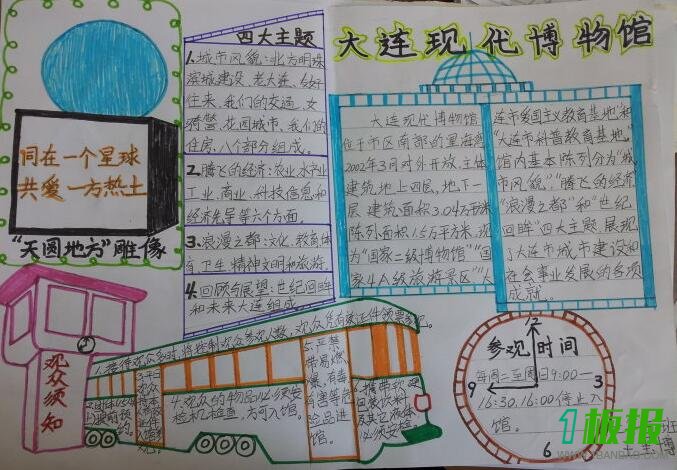 大连现代博物馆
四大主题
1.城市风貌:北方明珠
滨城建设、老大连、友好
往来、我们的交通、女
骑警、花园城市、我们的
住房,八个部分组成。
2.腾飞的经济:农业、水产业
工业、商业、科技信息和
经济先导等六个方面。
3.浪漫之都:文化、教育体
育、卫生、精神文明和旅游
4.回顾与展望:世纪回眸
和未来大连组成
同在一个星球
共爱一方热土
"天圆地方"雕像
大连现代博物馆
位于市区南部的星海湾
2002年3月对外开放,主体
建筑地上四层,地下一
层,建筑面积3.04万平米
陈列面积1.6万平米,现
为"国家二级博物馆""国
家4A级旅游景区""大
连市爱国主义教育基地"和
"大连市科普教育基地。"
馆内基本陈列分为"城
市风貌""腾飞的经济"
"浪漫之都"和"世纪
回眸"四大主题,展现
了大连市城市建设和
社会事业发展的各项
成就。
观众须知
4.观众的物品必须安
检机检查,方可入馆。
5.严禁
带易燃
爆、有毒
有害等危
险品进
馆。
6.携带软硬
包装饮料
及其它液体
必须安检。
参观时间
每周二至周日9:00—
16:30,16:00停止入
馆。
9
3
6
1板报
WWW.1BANBAO.COM